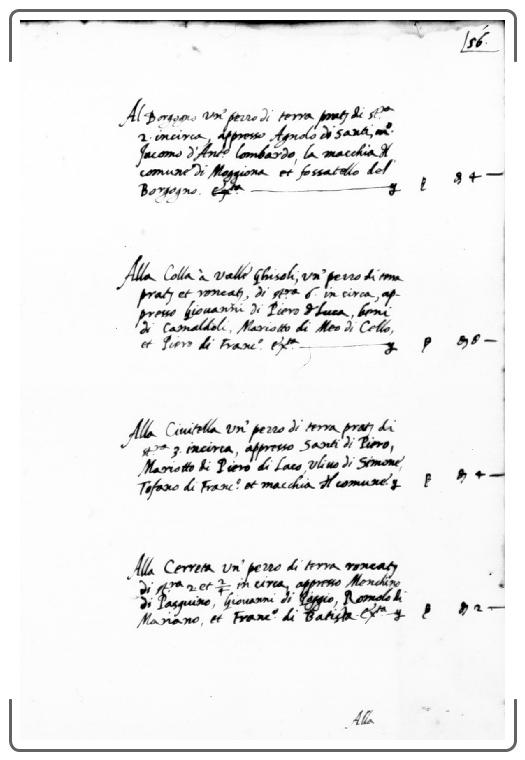 56.
Al Borgogno un' pezzo di terra prat? di st.ra
2. incirca, appresso Agnolo di Santi, m.o
Jacomo d'Ant.o lombardo, la macchia dl
comune di Moggiona et fossatello del
Borgogno. 4 —
Alla Colla à valle Ghisoli, un' pezzo di terra
et di st.ra 6. in circa, ap-
presso Giovanni di Piero d Luca, beni
di Camaldoli, Mariotto di Meo di Cello,
et Piero di Franc.o 8 —
Alla Civitella un' pezzo di terra di
st.ra 3. incirca, appresso Santi di Piero,
Mariotto di Piero di Laco, Ulivo di Simone,
Tofano di Franc.o et macchia dl comune 4 —
Alla Cerreta un' pezzo di terra
di st.ra 2 et in circa, appresso Menchino
di Pasquino, Giovanni di Poggio, Romolo di
Mariano, et Franc.o di Batista 2 —
Alla